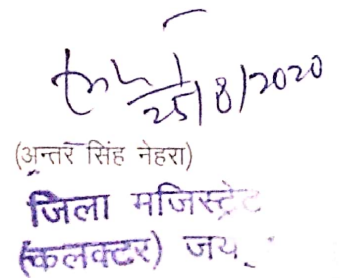 25/8/2020
(अन्तर सिंह नेहरा)
जिला मजिस्ट्रेट
(कलक्टर) जय